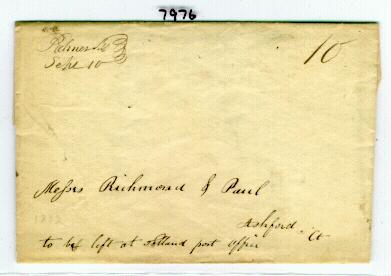 7976
Palmer
Sept 10
10
Messrs Richmond & Paul
Ashford Ct
1832
to be left at post office